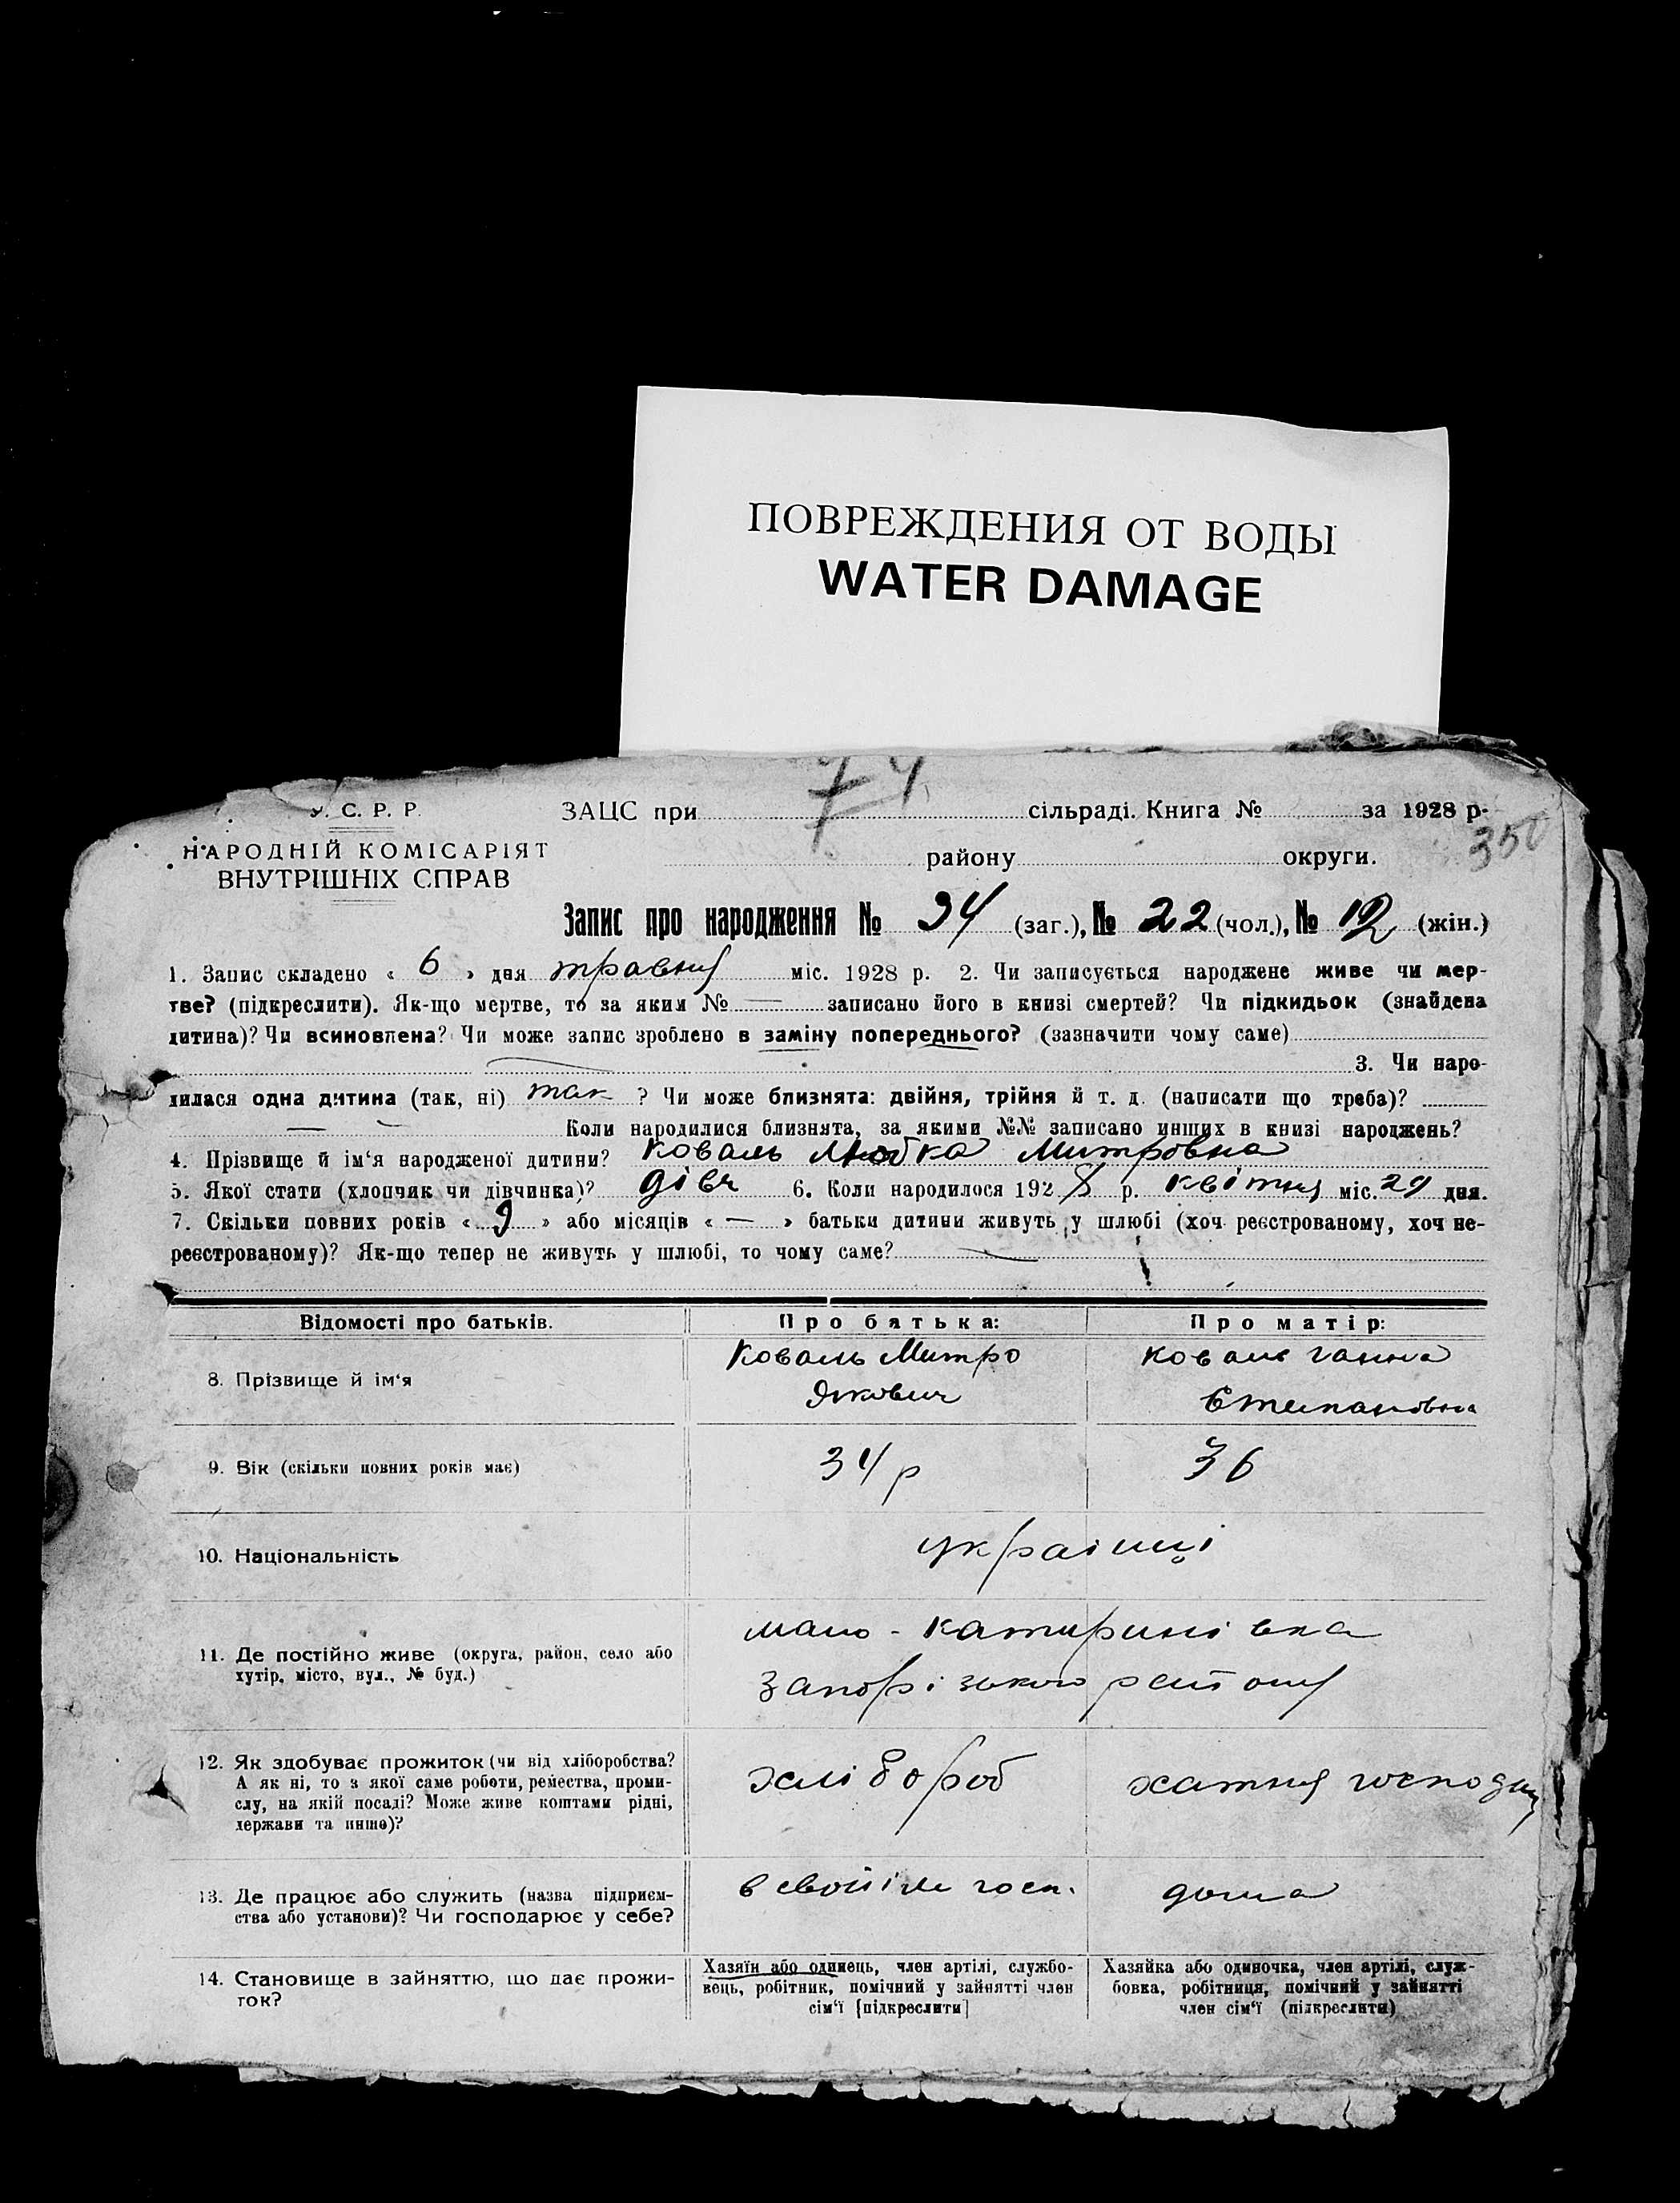 ПОВРЕЖДЕНИЯ ОТ ВОДЫ
WATER DAMAGE
74
У. С. Р. Р.
НАРОДНІЙ КОМІСАРІЯТ
ВНУТРІШНІХ СПРАВ
ЗАЦС при сільраді. Книга № за 1928 р.
350
району округи.
Запис про народження № 34 (заг.), № 22 (чол.), № 12 (жін.)
1. Запис складено « 6 » дня травня міс. 1928 р. 2. Чи записується народжене живе чи мер-
тве? (підкреслити). Як-що мертве, то за яким № — записано його в книзі смертей? Чи підкидьок (знайдена
дитина)? Чи всиновлена? Чи може запис зроблено в заміну попереднього? (зазначити чому саме)
— 3. Чи наро-
дилася одна дитина (так, ні) так ? Чи може близнята: двійня, трійня й т. д. (написати що треба)?
— — Коли народилися близнята, за якими №№ записано инших в книзі народжень?
4. Прізвище й ім‘я народженої дитини? Коваль Любка Митровна
5. Якої стати (хлопчик чи дівчинка)? дівч 6. Коли народилося 192 8 р. квітня міс. 29 дня.
7. Скільки повних років « 9 » або місяців « — » батьки дитини живуть у шлюбі (хоч реєстрованому, хоч не-
реєстрованому)? Як-що тепер не живуть у шлюбі, то чому саме? —
Відомості про батьків. Про батька: Про матір:
8. Прізвище й ім‘я Коваль Митро Якович Коваль Ганна Степановна
9. Вік (скільки повних років має) 34 р 36
10. Національність українці
11. Де постійно живе (округа, район, село або
хутір, місто, вул., № буд.)
мало-катиринівка
Запорізького району
12. Як здобуває прожиток (чи від хліборобства?
А як ні, то з якої саме роботи, ремества, проми-
слу, на якій посаді? Може живе коштами рідні,
держави та инше)?
хлібороб хатня господин
13. Де працює або служить (назва підприєм-
ства або установи)? Чи господарює у себе?
в своїм госп. дома
14. Становище в зайняттю, що дає прожи-
ток?
Хазяїн або одинець, член артілі, службо-
вець, робітник, помічний у зайнятті член
сім‘ї [підкреслити]
Хазяйка або одиночка, член артілі, служ-
бовка, робітниця, помічний у зайнятті
член сім‘ї (підкреслити)